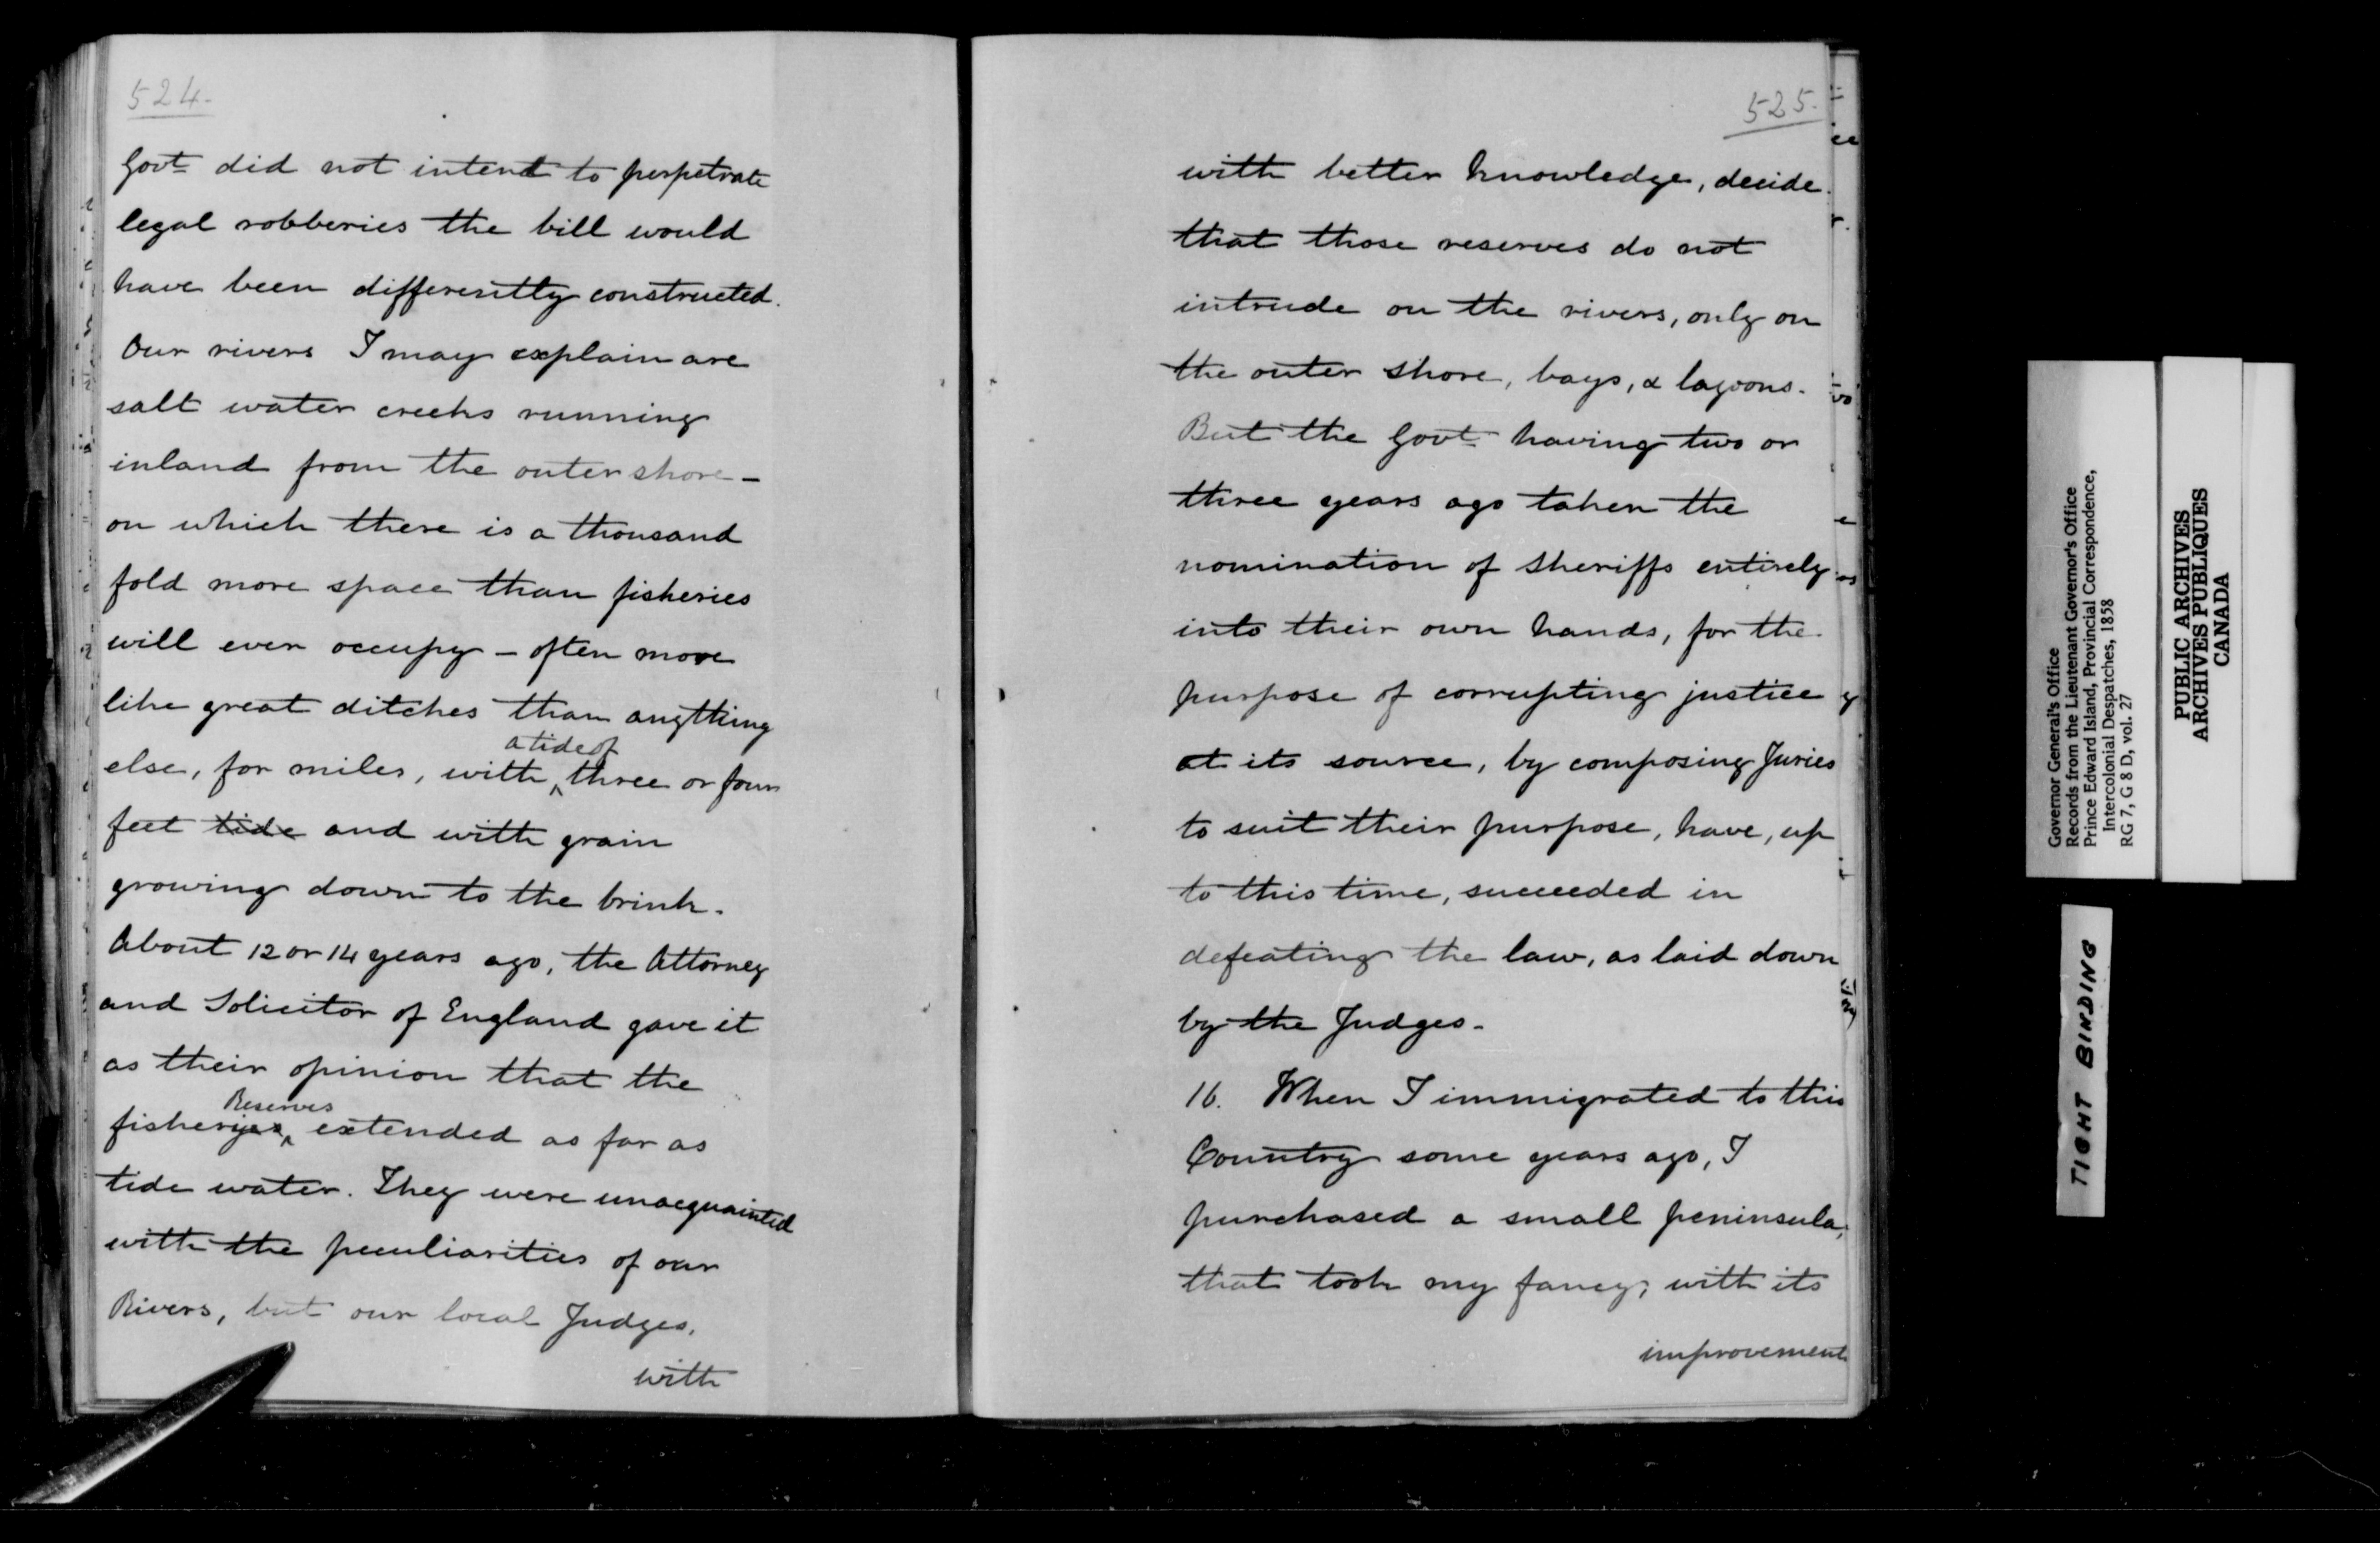 524.
Govt did not intend to perpetrate
legal robberies the bill would
have been differently constructed.
Our rivers I may explain are
salt water creeks running
inland from the outer shore -
on which there is a thousand
fold more space than fisheries
will ever occupy - often more
like great ditches than anything
a tide of
else, for miles, with ^ three or four
feet tide and with grain
growing down to the brink.
About 12 or 14 years ago, the Attorney
and Solicitor of England gave it
as their opinion that the
Reserves
fishery ^ extended as far as
tide water. They were unacquainted
with the peculiarities of our
Rivers, but our local Judges,
with
525.
with better knowledge, decide
that those reserves do not
intrude on the rivers, only on
the outer shore, bays, & lagoons.
But the Govt having two or
three years ago taken the
nomination of Sheriffs entirely
into their own hands, for the
purpose of corrupting justice
at its source, by composing Juries
to suit their purpose, have, up
to this time, succeeded in
defeating the law, as laid down
by the Judges.
16. When I immigrated to this
Country some years ago, I
purchased a small peninsula,
that took my fancy, with its
improvement
Governor General's Office
Records from the Lieutenant Governor's Office
Prince Edward Island, Provincial Correspondence,
Intercolonial Despatches, 1858
RG 7, G 8 D, vol. 27
PUBLIC ARCHIVES
ARCHIVES PUBLIQUES
CANADA
TIGHT BINDING